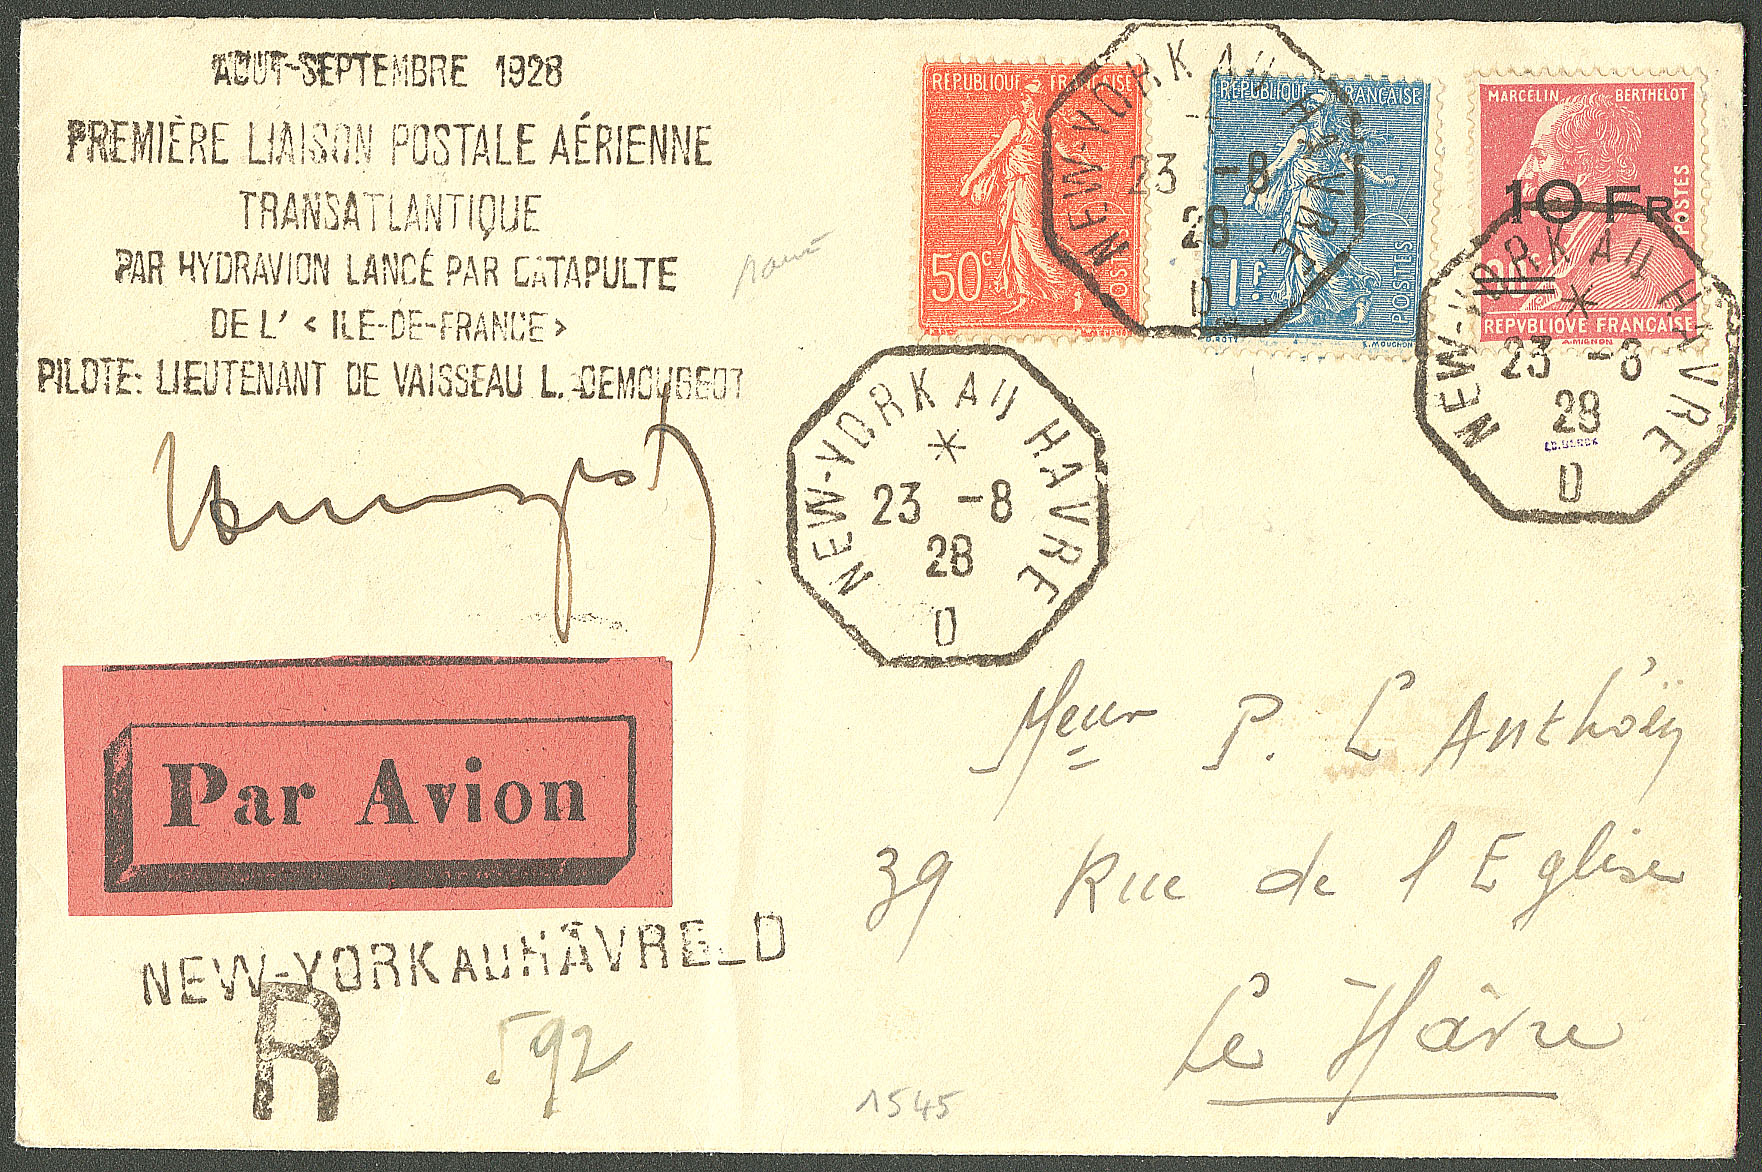 AOUT-SEPTEMBRE 1928
PREMIÈRE LIAISON POSTALE AÉRIENNE
TRANSATLANTIQUE
PAR HYDRAVION LANCÉ PAR CATAPULTE
DE L' < ILE-DE-FRANCE >
PILOTE: LIEUTENANT DE VAISSEAU L. DEMOUGEOT
REPUBLIQUE FRANÇAISE
50c
POSTES
REPUBLIQUE FRANÇAISE
1F
POSTES
O. ROTY
E. MOUCHON
MARCELIN BERTHELOT
10 Fr.
90c
POSTES
REPVBLIQVE FRANÇAISE
A. MIGNON
NEW-YORK AU HAVRE
23 -8
28
D
NEW-YORK AU HAVRE
*
23 -8
28
D
NEW-YORK AU HAVRE
*
23 -8
28
D
Par Avion
NEW-YORK AU HAVRE_D
R
592
1545
Meur P. L Anthoën
39 Rue de l Eglise
Le Hâvre